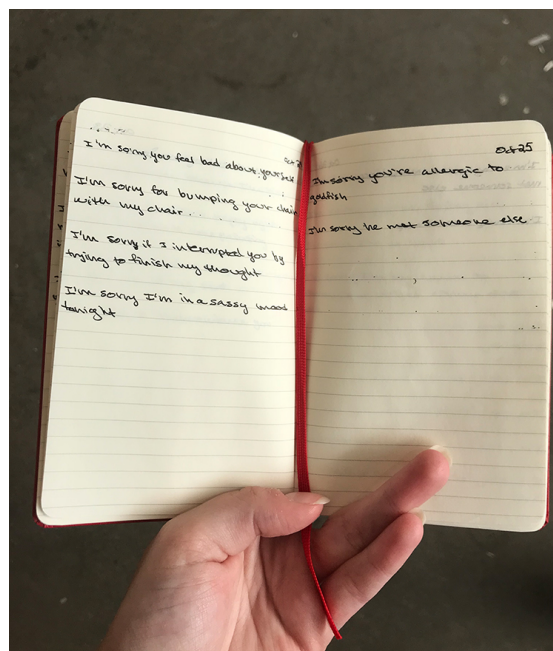 Oct 2
I'm sorry you feel bad about yourself
I'm sorry for bumping your chair
with my chair..
I'm sorry if I interrupted you by
trying to finish my thought
I'm sorry I'm in a sassy mood
tonight
Oct 25
I'm sorry you're allergic to
goldfish
I'm sorry he met someone else